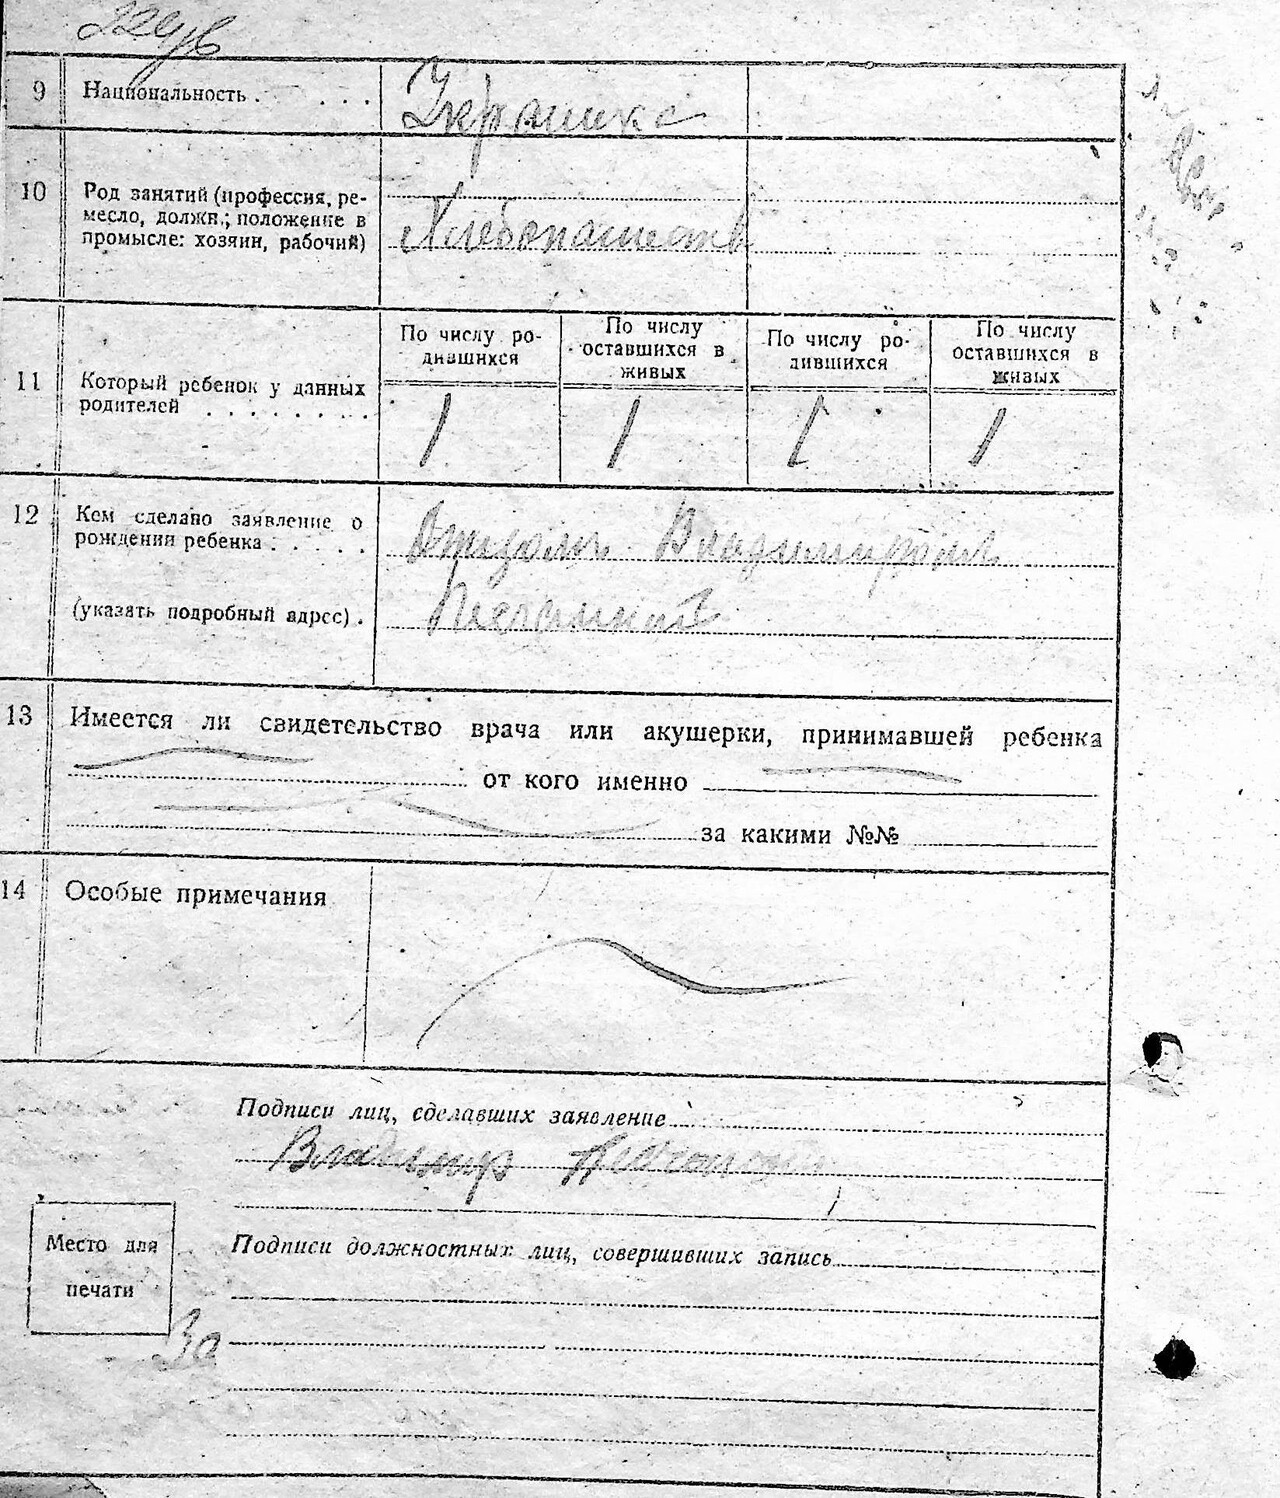 9 Национальность . . . . Украинка
10 Род занятий (профессия, ре-
месло, должн.; положение в
промысле: хозяин, рабочий) Хлебопашеств
По числу ро-
дившихся
По числу
оставшихся в
живых
По числу ро-
дившихся
По числу
оставшихся в
живых
11 Который ребенок у данных
родителей . . . . . . . .
1 1 1 1
12 Кем сделано заявление о
рождении ребенка . . . . . Владимиром
(указать подробный адрес) .
13 Имеется ли свидетельство врача или акушерки, принимавшей ребенка
от кого именно
за какими №№
14 Особые примечания
Подписи лиц, сделавших заявление
Владимир
Место для
печати
Подписи должностных лиц, совершивших запись
За